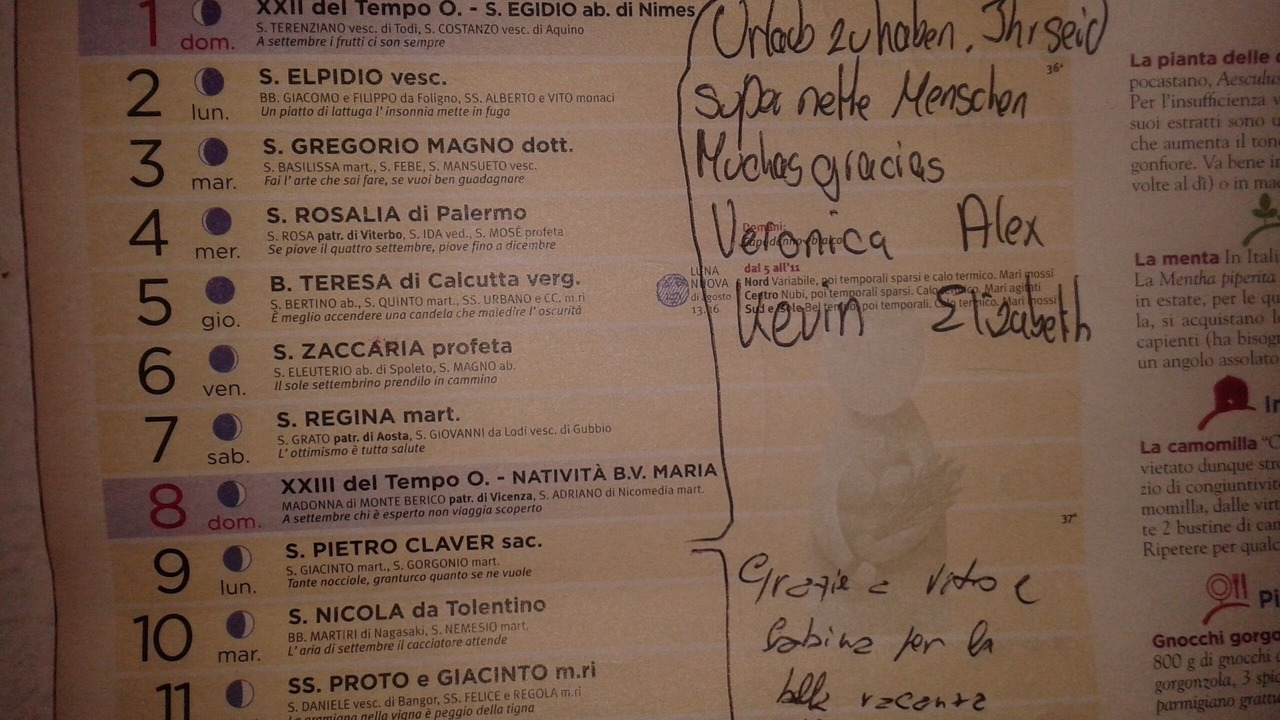 1 XXII del Tempo O. - S. EGIDIO ab. di Nimes
dom. S. TERENZIANO vesc. di Todi, S. COSTANZO vesc. di Aquino
A settembre i frutti ci son sempre
2 S. ELPIDIO vesc.
lun. BB. GIACOMO e FILIPPO da Foligno, SS. ALBERTO e VITO monaci
Un piatto di lattuga l'insonnia mette in fuga
3 S. GREGORIO MAGNO dott.
mar. S. BASILISSA mart., S. FEBE, S. MANSUETO vesc.
Fai l'arte che sai fare, se vuoi ben guadagnare
4 S. ROSALIA di Palermo
mer. S. ROSA patr. di Viterbo, S. IDA ved., S. MOSÈ profeta
Se piove il quattro settembre, piove fino a dicembre
5 B. TERESA di Calcutta verg.
gio. S. BERTINO ab., S. QUINTO mart., SS. URBANO e CC. m.ri
È meglio accendere una candela che maledire l'oscurità
6 S. ZACCARIA profeta
ven. S. ELEUTERIO ab. di Spoleto, S. MAGNO ab.
Il sole settembrino prendilo in cammino
7 S. REGINA mart.
sab. S. GRATO patr. di Aosta, S. GIOVANNI da Lodi vesc. di Gubbio
L'ottimismo è tutta salute
8 XXIII del Tempo O. - NATIVITÀ B.V. MARIA
dom. MADONNA di MONTE BERICO patr. di Vicenza, S. ADRIANO di Nicomedia mart.
A settembre chi è esperto non viaggia scoperto
9 S. PIETRO CLAVER sac.
lun. S. GIACINTO mart., S. GORGONIO mart.
Tante nocciole, granturco quanto se ne vuole
10 S. NICOLA da Tolentino
mar. BB. MARTIRI di Nagasaki, S. NEMESIO mart.
L'aria di settembre il cacciatore attende
11 SS. PROTO e GIACINTO m.ri
S. DANIELE vesc. di Bangor, SS. FELICE e REGOLA m.ri
La gramigna nella vigna è peggio della tigna
Urlaub zu haben. Ihr seid
36ª
super nette Menschen
Muchas gracias
Veronica Alex
Domani:
LUNA
NUOVA
dal 5 all'11
Nord Variabile, poi temporali sparsi e calo termico. Mari mossi
Centro Nubi, poi temporali sparsi. Calo termico. Mari agitati
Sud e Isole Bel tempo, poi temporali. Calo termico. Mari mossi
Kevin Elizabeth
37ª
Grazie a Vito e
Sabina per la
bella vacanza
La pianta delle
pocastano, Aesculus
Per l'insufficienza
suoi estratti sono
che aumenta il
gonfiore. Va bene
volte al dì) o in
La menta In
La Mentha piperita
in estate, per le
la, si acquistano
capienti (ha
un angolo
La camomilla
vietato dunque
zio di
momilla, dalle
te 2 bustine di
Ripetere per
Gnocchi
800 g di gnocchi
gorgonzola, 3
parmigiano